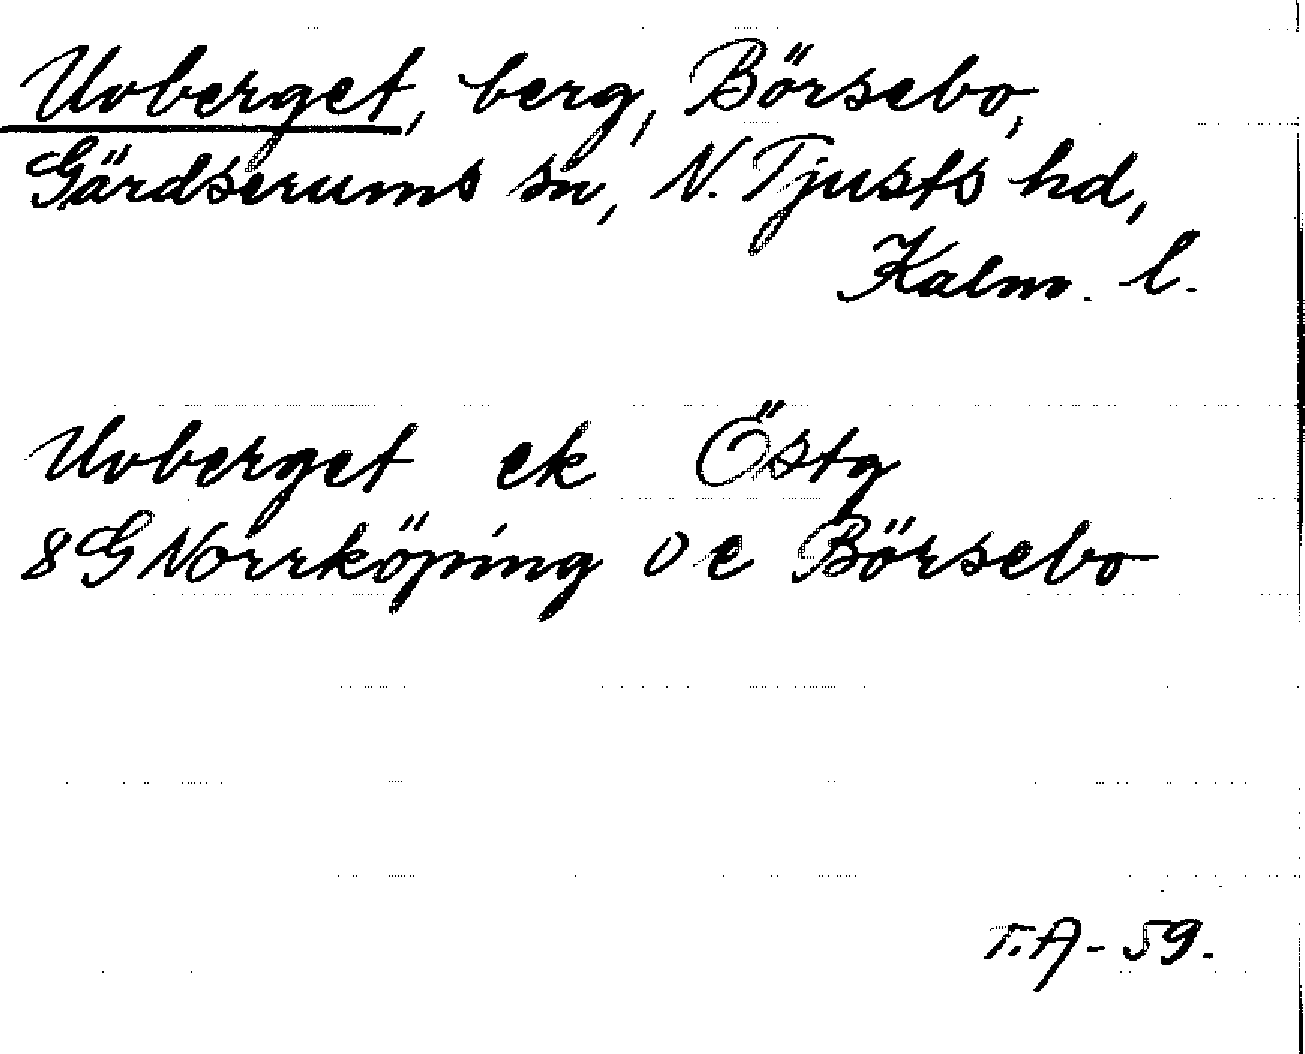 Uvberget, berg, Börsebo,
Gärdserums sn, N. Tjusts hd,
Kalm. l.
Uvberget ek Östg
8G Norrköping
Börsebo
T.A-59.